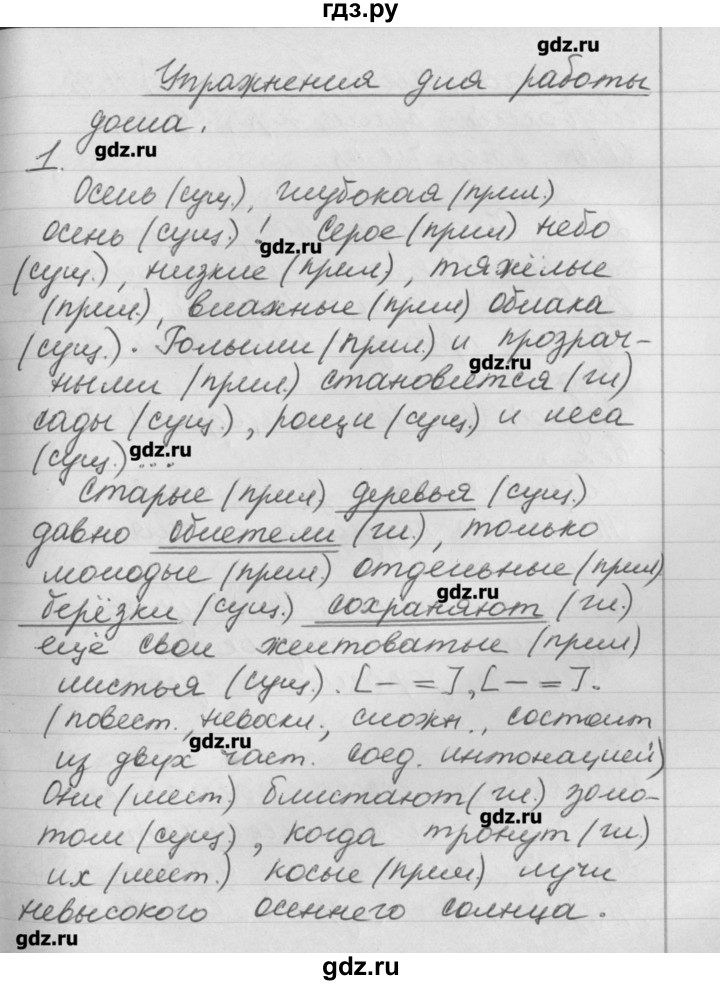 гдз.ру
gdz.ru
Упражнения для работы
дома.
gdz.ru
1.
Осень (сущ.), глубокая (прил.)
осень (сущ.)! Серое (прил) небо
gdz.ru
(сущ.), низкие (прил.), тяжёлые
(прил.), влажные (прил) облака
(сущ.). Голыми (прил.) и прозрач-
gdz.ru
ными (прил.) становятся (гл)
сады (сущ.), рощи (сущ.) и леса
(сущ.)...
gdz.ru
Старые (прил) деревья (сущ.)
давно облетели (гл.), только
молодые (прил) отдельные (прил)
gdz.ru
берёзки (сущ.) сохраняют (гл.)
ещё свои желтоватые (прил)
листья (сущ.). [– =], [– =].
(повест., невоскл., сложн., состоит
gdz.ru
из двух част. соед. интонацией)
Они (мест.) блистают (гл.) золо-
gdz.ru
том (сущ.), когда тронут (гл.)
их (мест.) косые (прил) лучи
невысокого осеннего солнца.
gdz.ru
gdz.ru